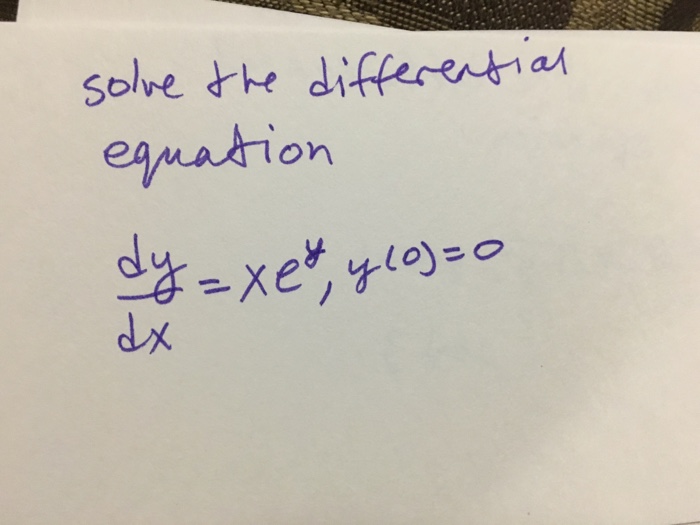 solve the differential
equation
dy/dx = xe^y, y(0)=0